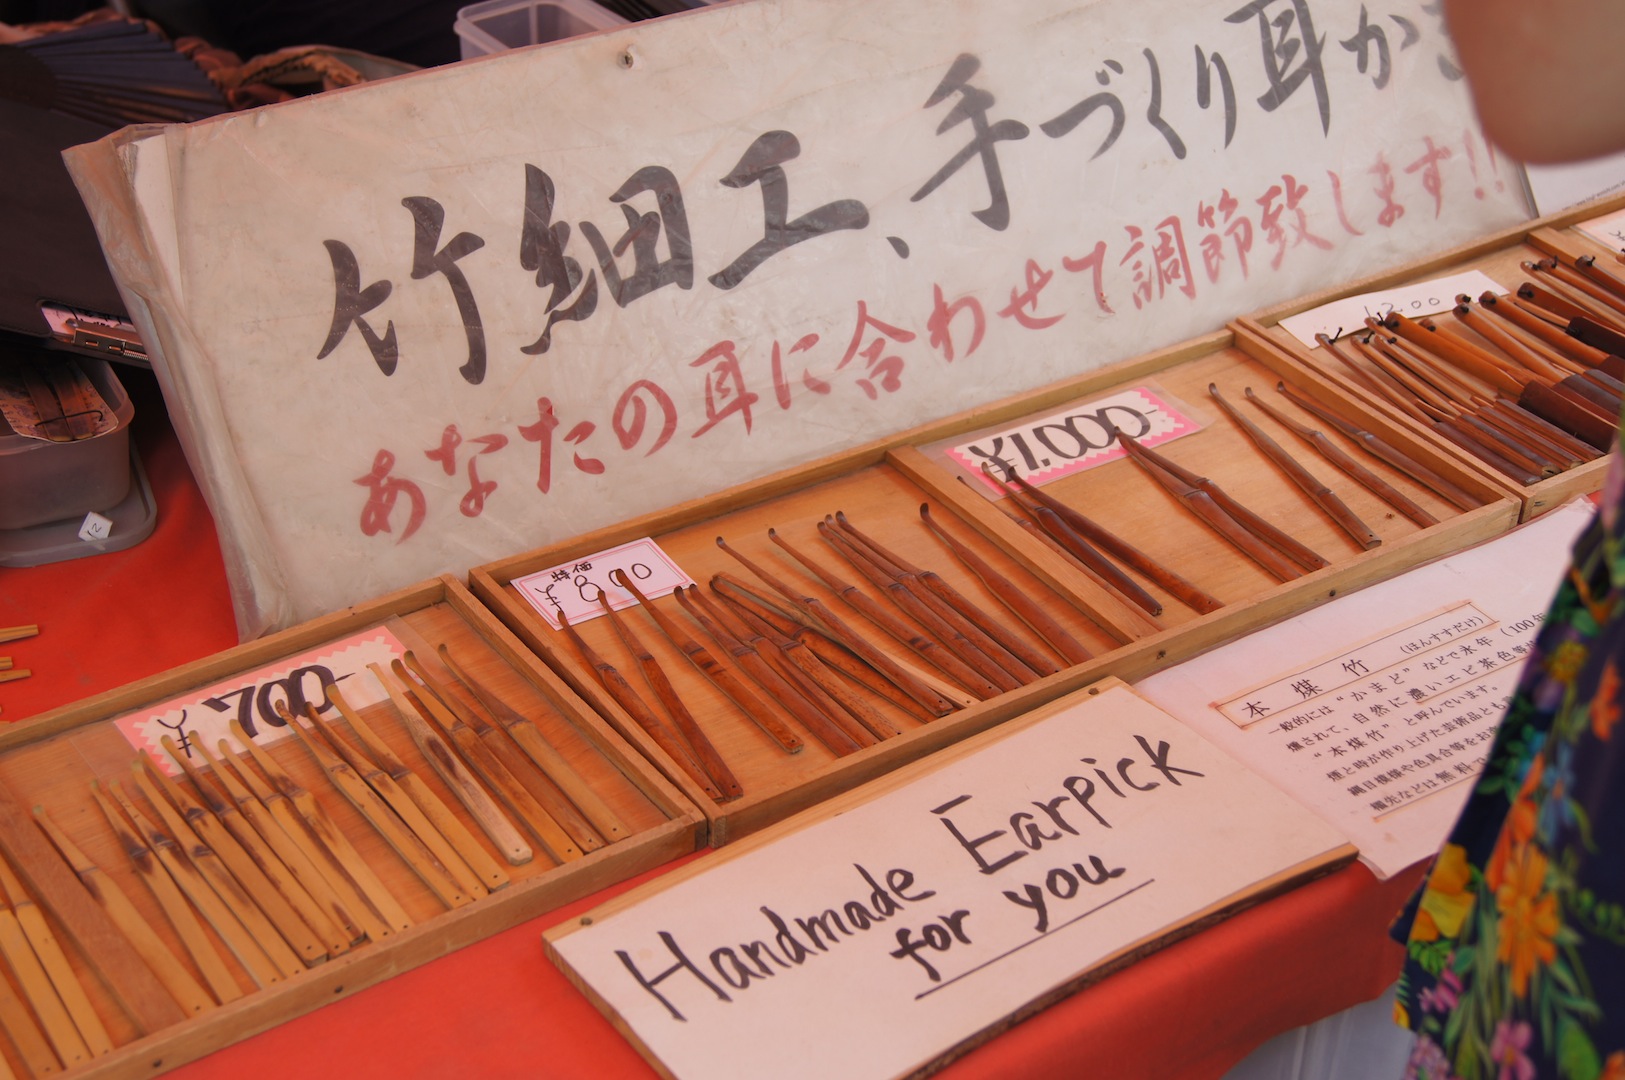 竹細工、手づくり耳か
あなたの耳に合わせて調節致します!!
¥1.000-
特価
¥800
¥700-
Handmade Earpick
for you
本煤竹 (ほんすすだけ)
一般的には“かまど”などで永年(100年
燻されて、自然に濃いエビ茶色等
“本煤竹”と呼んでいます。
煙と時が作り上げた芸術品とも
縄目模様や色具合等をお
欄先などは無料で